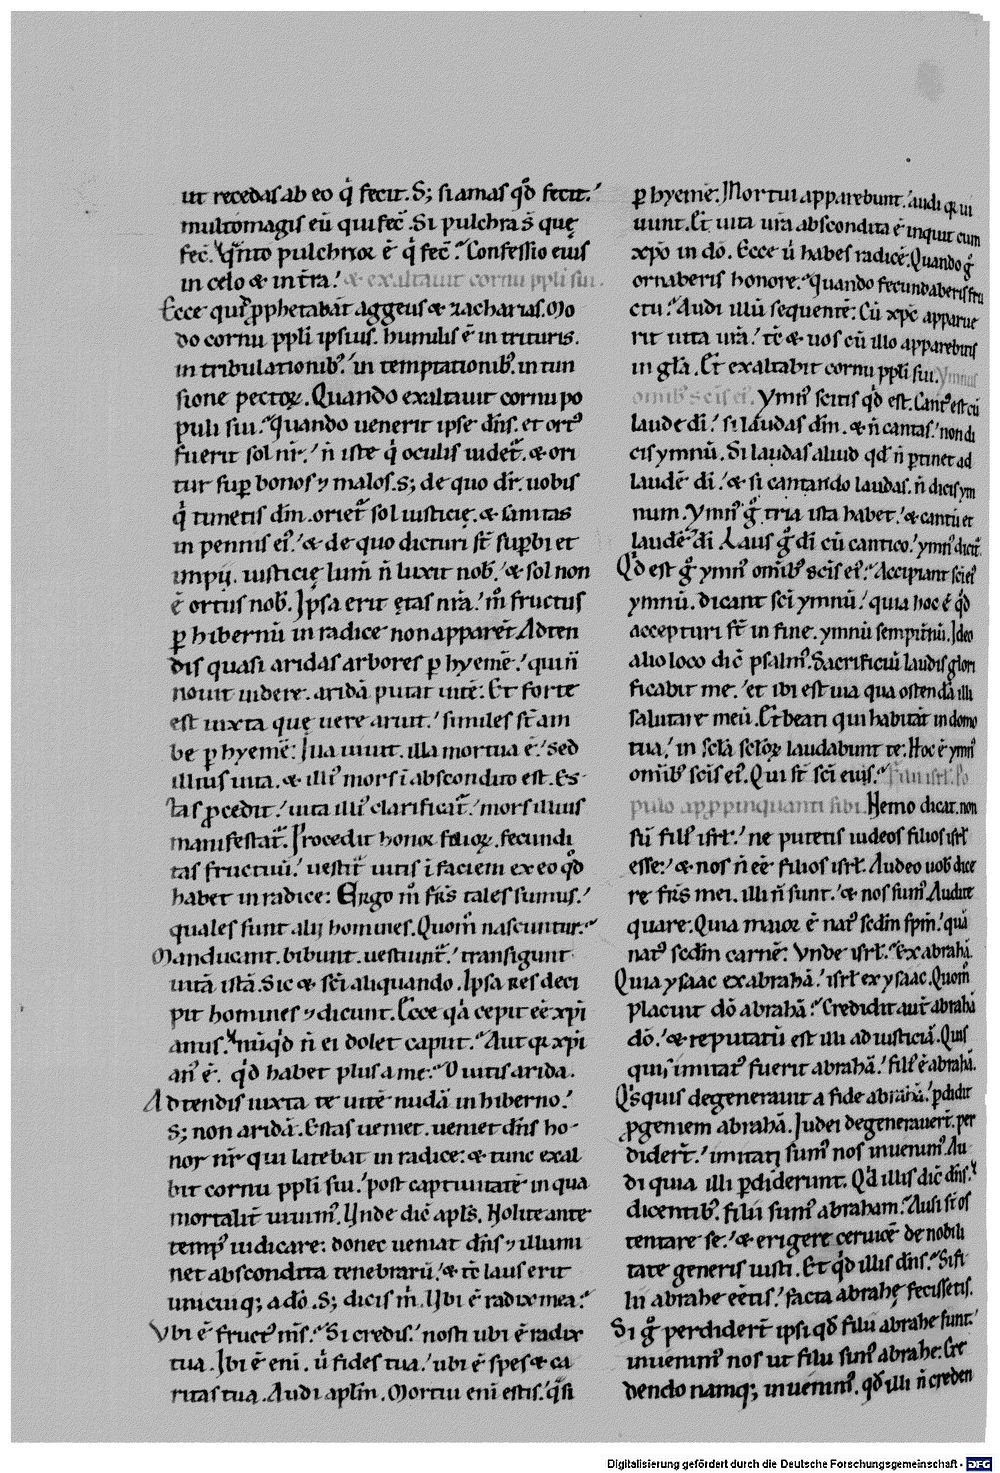 ut recedas ab eo q̇ fecit. S; si amas qd̄ fecit.'
multo magis eū qui fec̄. Si pulchra s̄ quę
fec̄. qͣnto pulchrior ē q̇ fec̄. Confessio eius
in celo & in tr̄a.' & exaltauit cornu ppl̄i sui.
Ecce qui ꝓphetabāt aggeus & zacharias. Mo
do cornu ppl̄i ipsius. humilis ē in trituris.
in tribulationib⁹.' in temptationib⁹. in tun
sione pectoꝝ. Quando exaltauit cornu po
puli sui. quando uenerit ipse dn̄s. et ort⁹
fuerit sol nr̄.' n̄ iste q̇ oculis uidet᷑. & ori
tur suꝑ bonos ⁊ malos. s; de quo dr̄. uobis
q̇ timetis dm̄. oriet᷑ sol iusticię. & sanitas
in pennis ei⁹.' & de quo dicturi st̄ suꝑbi et
impij. iusticię lum̄ n̄ luxit nob̄.' & sol non
ē ortus nob̄. Ipsa erit ętas nr̄a.' m̊ fructus
ꝑ hibernū in radice non apparet. Adten
dis quasi aridas arbores ꝑ hyemē.' qui n̄
nouit uidere. aridā putat uitē. Et forte
est iuxta quę uere aruit.' similes st̄ am
be ꝑ hyemē. Illa uiuit. illa mortua ē.' Sed
illius uita. & illi⁹ mors ī abscondito est. Es
tas ꝓcedit.' uita illi⁹ clarificat᷑.' mors illius
manifestat᷑. Procedit honor folioꝝ. fecundi
tas fructuū.' uestit᷑ uitis ī faciem ex eo qd̄
habet in radice: Ergo m̊ fr̄s tales sumus.'
quales sunt alij homines. Quom̊ nascuntur.
Manducant. bibunt. uestiunt᷑.' transigunt
uitā istā. Sic & sc̄i aliquando. Ipsa res deci
pit homines ⁊ dicunt. Ecce qͣ cepit eē xp̄i
anus. nūqd̄ n̄ ei dolet caput. Aut q̇ xp̄i
an⁹ ē. qd̄ habet plus a me. O uitis arida.
Adtendis iuxta te uitē nudā in hiberno.'
s; non aridā. Estas ueniet. ueniet dn̄s ho
nor nr̄ qui latebat in radice: & tunc exal
bit cornu ppl̄i sui.' post captiuitatē in qua
mortalit᷑ uiuim⁹. Unde dic̄ apl̄s. Nolite ante
temp⁹ iudicare: donec ueniat dn̄s ⁊ illumi
net abscondita tenebrarū.' & tc̄ laus erit
unicuiq; a dō. S; dicis m̄. Ubi ē radix mea.
Vbi ē fruct⁹ m̄s. Si credis.' nosti ubi ē radix
tua. Ibi ē eni. ū fides tua.' ubi ē spes & ca
ritas tua. Audi aplm̄. Mortui eni estis.' qͣsi
ꝑ hyemē. Mortui apparebunt.' audi q̇ ui
uunt. Et uita ur̄a abscondita ē inquit cum
xp̄o in dō. Ecce ū habes radicē. Quando g̊
ornaberis honore. quando fecundaberis fru
ctu. Audi illū sequentē: Cū xp̄c apparue
rit uita ur̄a.' tc̄ & uos cū illo apparebitis
in gl̄a. Et exaltabit cornu ppl̄i sui. Ymnus
omib⁹ scīs ei⁹. Ymn⁹ scitis qd̄ est. Cant⁹ est cū
laude dī.' si laudas dm̄. & n̄ cantas.' non di
cis ymnū. Si laudas aliud qd̄ n̄ ꝑtinet ad
laudē dī.' & si cantando laudas. n̄ dicis ym
num. Ymn⁹ g̊ tria ista habet.' & cantū et
laudē dī. Laus g̊ dī cū cantico.' ymn⁹ dicit᷑.
Qd̄ est g̊ ymn⁹ omib⁹ scīs ei⁹. Accipiant sc̄i ei⁹
ymnū. dicant sc̄i ymnū.' quia hoc ē qd̄
accepturi st̄ in fine. ymnū sempitnū. Ideo
alio loco dic̄ psalm⁹. Sacrificiū laudis glori
ficabit me.' et ibi est uia qua ostendā illi
salutare meū. Et beati qui habitāt in domo
tua.' in scl̄a scl̄oꝝ laudabunt te: Hoc ē ymn⁹
omib⁹ scīs ei⁹. Qui st̄ sc̄i eius. Filii isrl̄. Po
pulo appropinquanti sibi. Nemo dicat. non
sū fili⁹ isrl̄.' ne putetis iudeos filios isrl̄
esse.' & nos n̄ eē filios isrl̄. Audeo uob̄ dice
re fr̄s mei. illi n̄ sunt.' & nos sum⁹. Audite
quare. Quia maior ē nat⁹ scdm̄ spm̄.' quā
nat⁹ scdm̄ carnē. Vnde isrl̄. Ex abrahā.
Quia ysaac ex abrahā.' isrl̄ ex ysaac. Quom̊
placuit dō abrahā. Credidit aut̄ abrahā
dō.' & reputatū est illi ad iusticiā. Quis
quis imitat⁹ fuerit abrahā.' fili⁹ ē abrahā.
Qͥsquis degenerauit a fide abrahā.' ꝑdidit
ꝓgeniem abrahā. Iudei degenerauer̄t. per
dider̄t.' imitati sum⁹ nos inuenim⁹. Au
di quia illi ꝑdiderunt. Qd̄ illis dic̄ dn̄s.
dicentib⁹. filii sum⁹ abraham. Ausi st̄ os
tentare se.' & erigere ceruicē de nobili
tate generis iusti. Et qd̄ illis dn̄s. Si fi
lii abrahe eētis.' facta abrahę fecissetis.
Si g̊ perdider̄t ipsi qd̄ filii abrahe sunt.'
inuenim⁹ nos ut filii sum⁹ abrahe. Cre
dendo namq; inuenim⁹. qd̄ illi n̄ creden
Digitalisierung gefördert durch die Deutsche Forschungsgemeinschaft - DFG